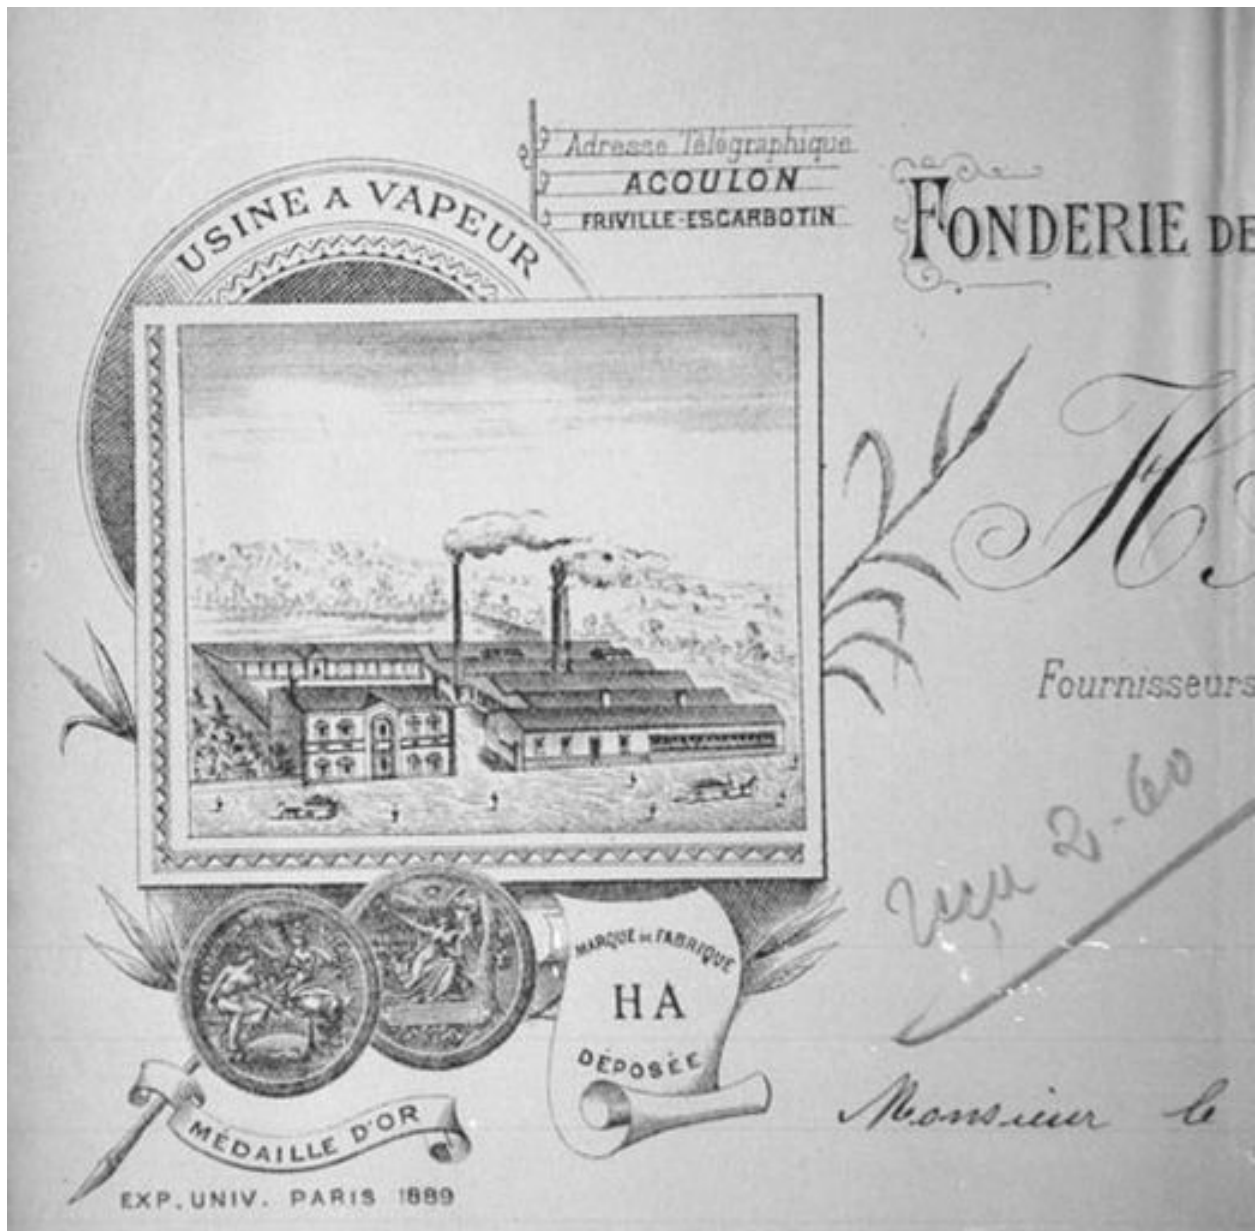 Adresse Télégraphique
ACOULON
FRIVILLE-ESCARBOTIN
USINE A VAPEUR
FONDERIE DE
H
Fournisseurs
2-60
MARQUE DE FABRIQUE
HA
DÉPOSÉE
Monsieur le
MÉDAILLE D'OR
EXP. UNIV. PARIS 1889